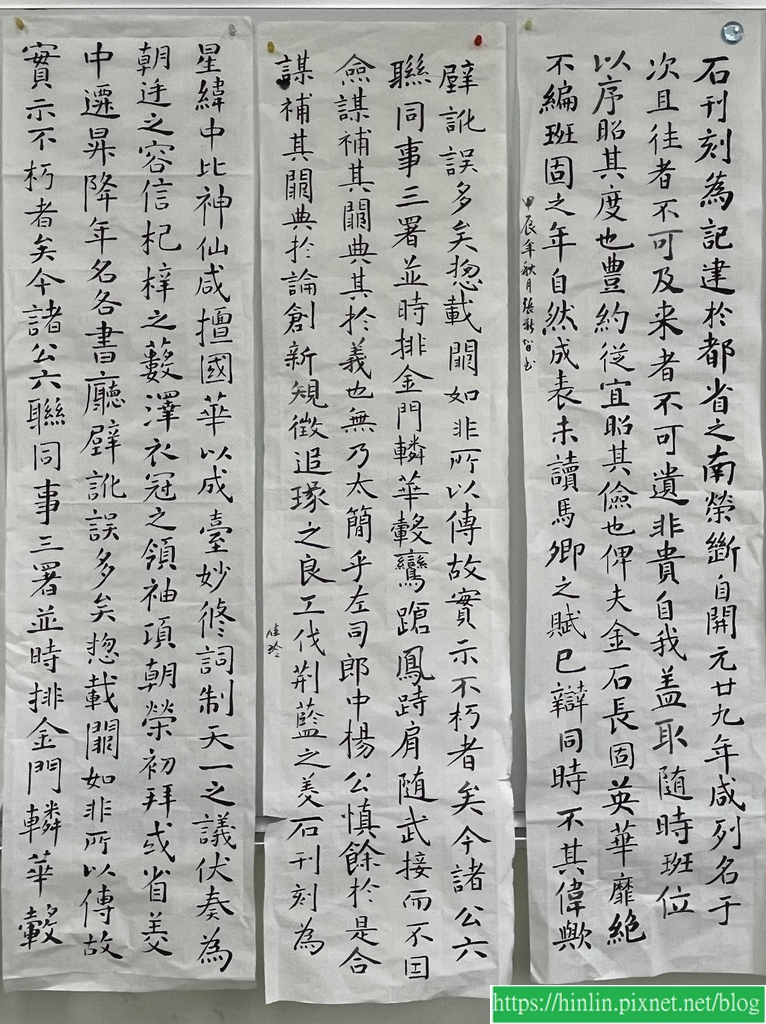 石刊刻為記建於都省之南榮斷自開元廿九年咸列名于
次且往者不可及来者不可遺非貴自我盖取隨時班位
以序昭其度也豊約從宜昭其儉也俾夫金石長固英華靡絶
不編班固之年自然成表未讀馬卿之賦已辯同時不其偉歟
甲辰年秋月張新智書
壁訛誤多矣揔載闕如非所以傳故實示不朽者矣今諸公六
聯同事三署並時排金門轔華轂鸞蹌鳳跱肩随武接而不因
僉謀補其闕典其於義也無乃太簡乎左司郎中楊公慎餘於是合
謀補其闕典於論創新規徵追琢之良工伐荆藍之美石刊刻為
佳玲
星緯中比神仙咸擅國華以成臺妙修詞制天一之議伏奏為
朝廷之容信杞梓之藪澤衣冠之領袖項朝榮初拜或省美
中遷昇降年名各書廳壁訛誤多矣揔載闕如非所以傳故
實示不朽者矣今諸公六聯同事三署並時排金門轔華轂
https://hinlin.pixnet.net/blog